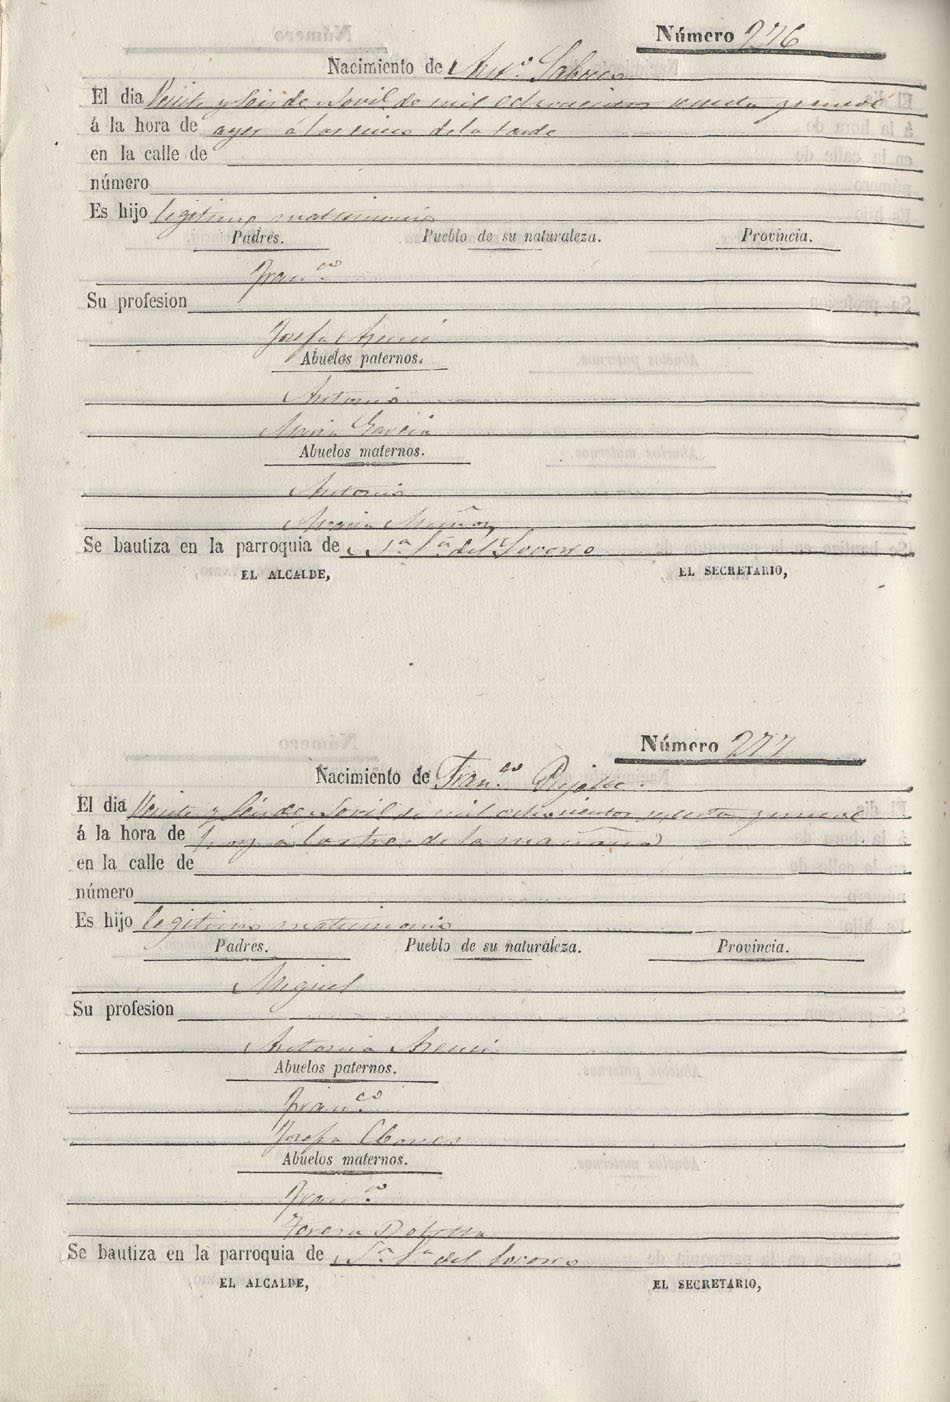 Número 276
Nacimiento de Ant.º
El dia Veinte y Seis de Abril de mil ochocientos sesenta y nueve
á la hora de ayer á las cinco de la tarde
en la calle de
número
Es hijo legitimo matrimonio
Padres. Pueblo de su naturaleza. Provincia.
Fran.co
Su profesion
Josefa
Abuelos paternos.
Antonio
Maria Garcia
Abuelos maternos.
Antonio
Maria Muñoz
Se bautiza en la parroquia de N.a S.a del Socorro
EL ALCALDE, EL SECRETARIO,
Número 277
Nacimiento de Fran.co
El dia Veinte y Seis de Abril de mil ochocientos sesenta y nueve
á la hora de hoy a las tres de la mañana
en la calle de
número
Es hijo legitimo matrimonio
Padres. Pueblo de su naturaleza. Provincia.
Miguel
Su profesion
Antonia
Abuelos paternos.
Fran.co
Josefa
Abuelos maternos.
Fran.co
Teresa
Se bautiza en la parroquia de N.a S.a del Socorro
EL ALCALDE, EL SECRETARIO,